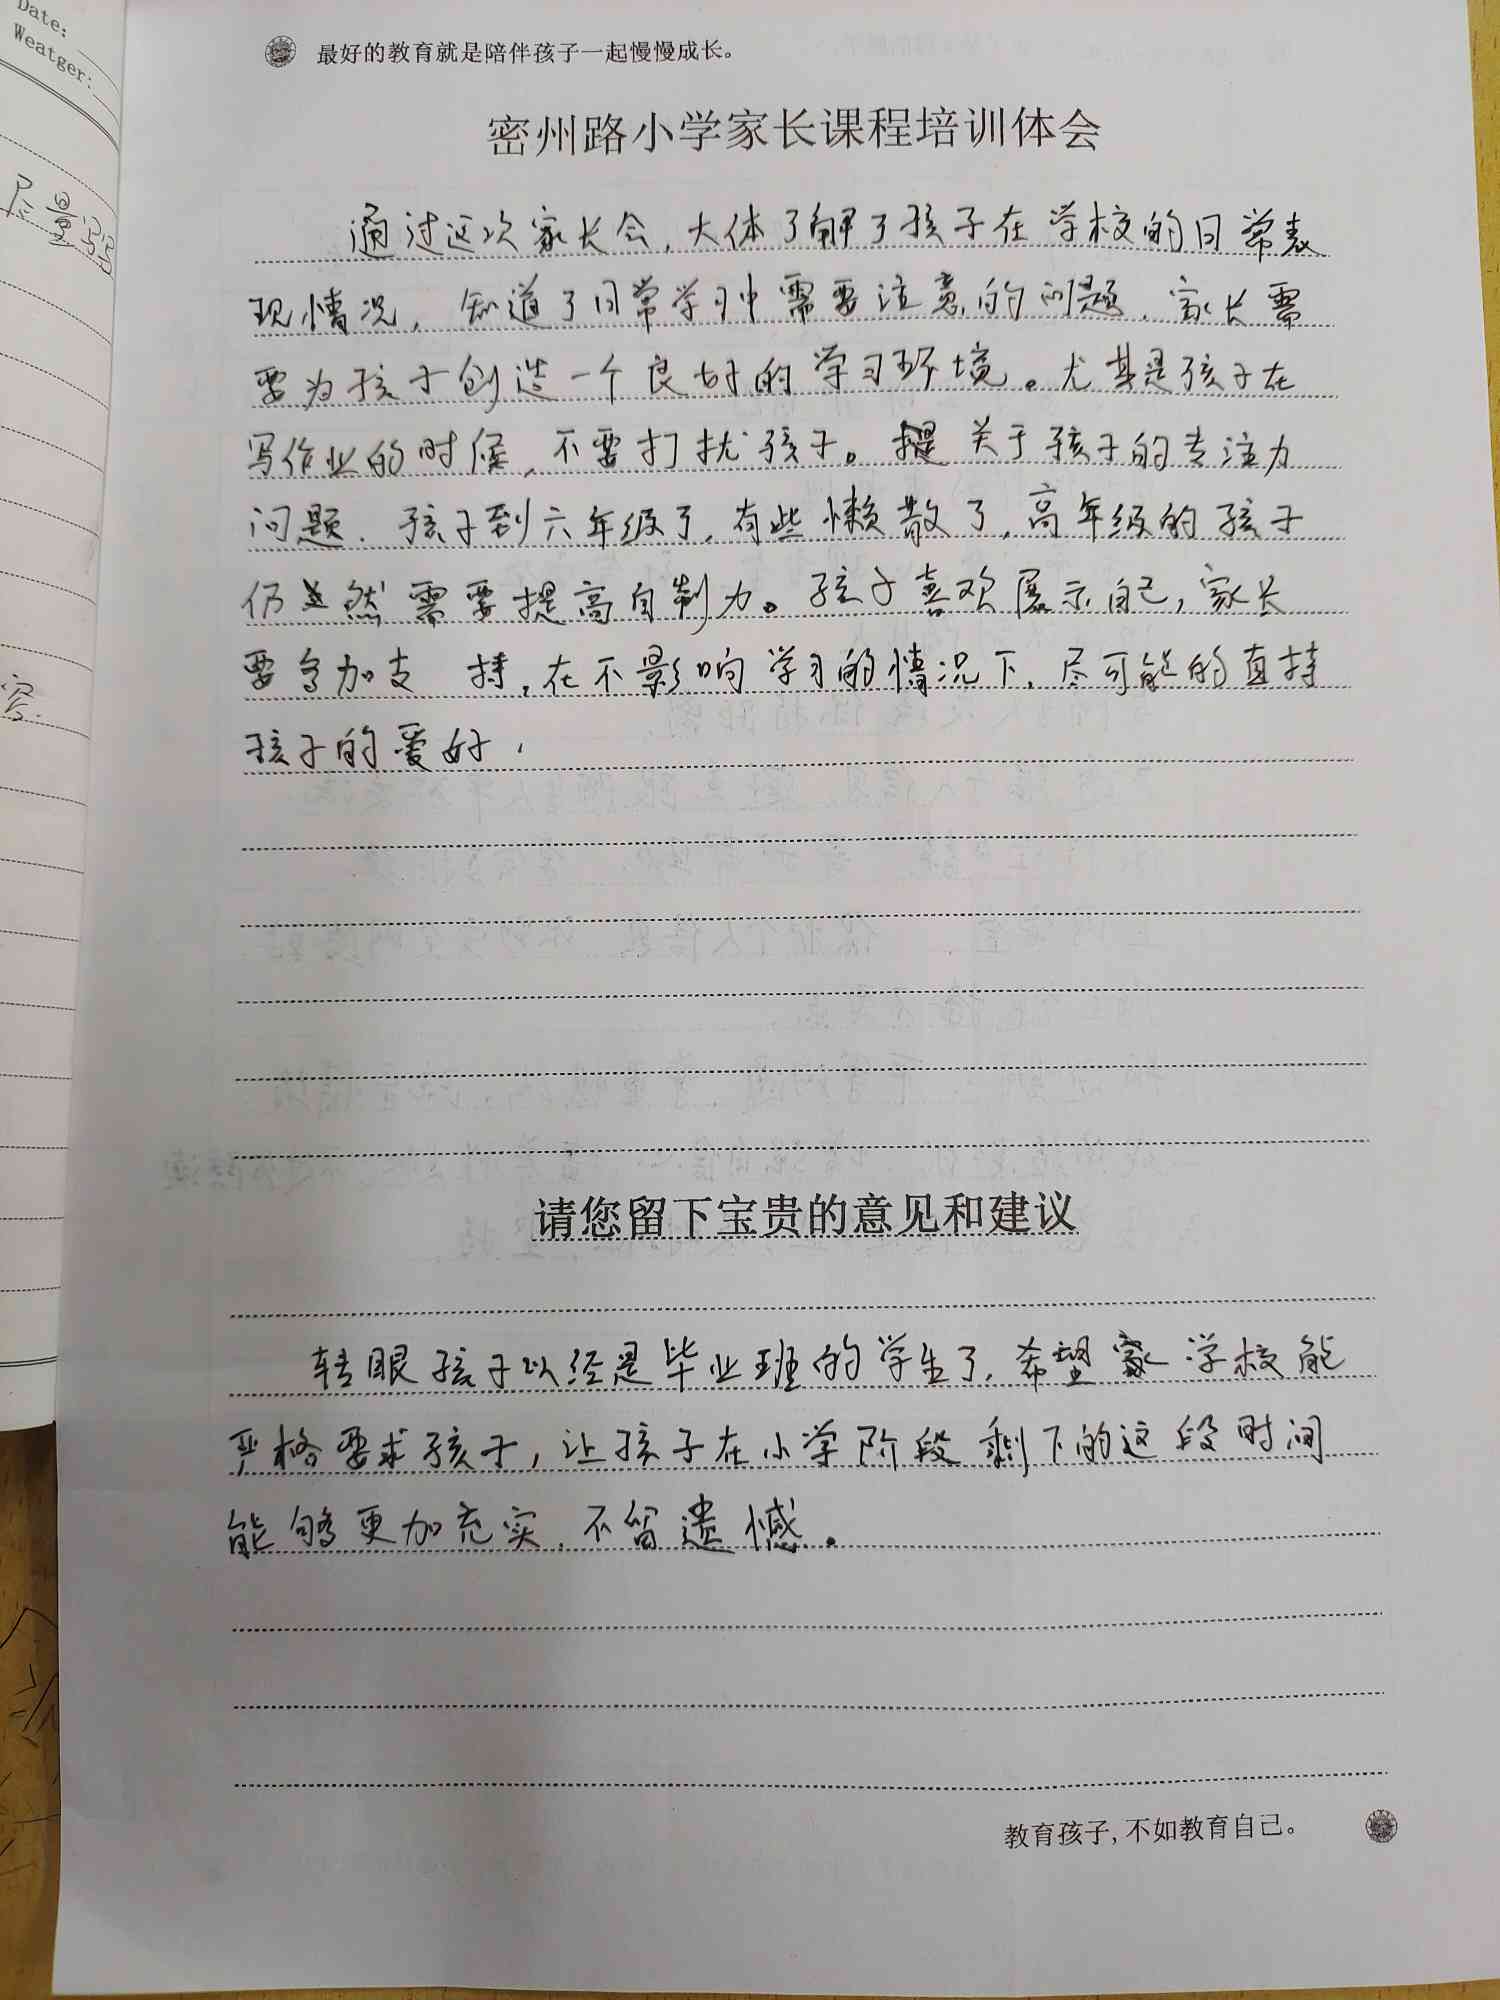 Date:
Weatger:
尽量写写
容
最好的教育就是陪伴孩子一起慢慢成长。
密州路小学家长课程培训体会
通过这次家长会,大体了解了孩子在学校的日常表
现情况,知道了日常学习中需要注意的问题,家长需
要为孩子创造一个良好的学习环境。尤其是孩子在
写作业的时候,不要打扰孩子。提关于孩子的专注力
问题,孩子到六年级了,有些懒散了,高年级的孩子
仍然需要提高自制力。孩子喜欢展示自己,家长
要多加支 持,在不影响学习的情况下,尽可能的直持
孩子的爱好,
请您留下宝贵的意见和建议
转眼孩子以经是毕业班的学生了,希望家学校能
严格要求孩子,让孩子在小学阶段剩下的这段时间
能够更加充实,不留遗憾。
教育孩子,不如教育自己。